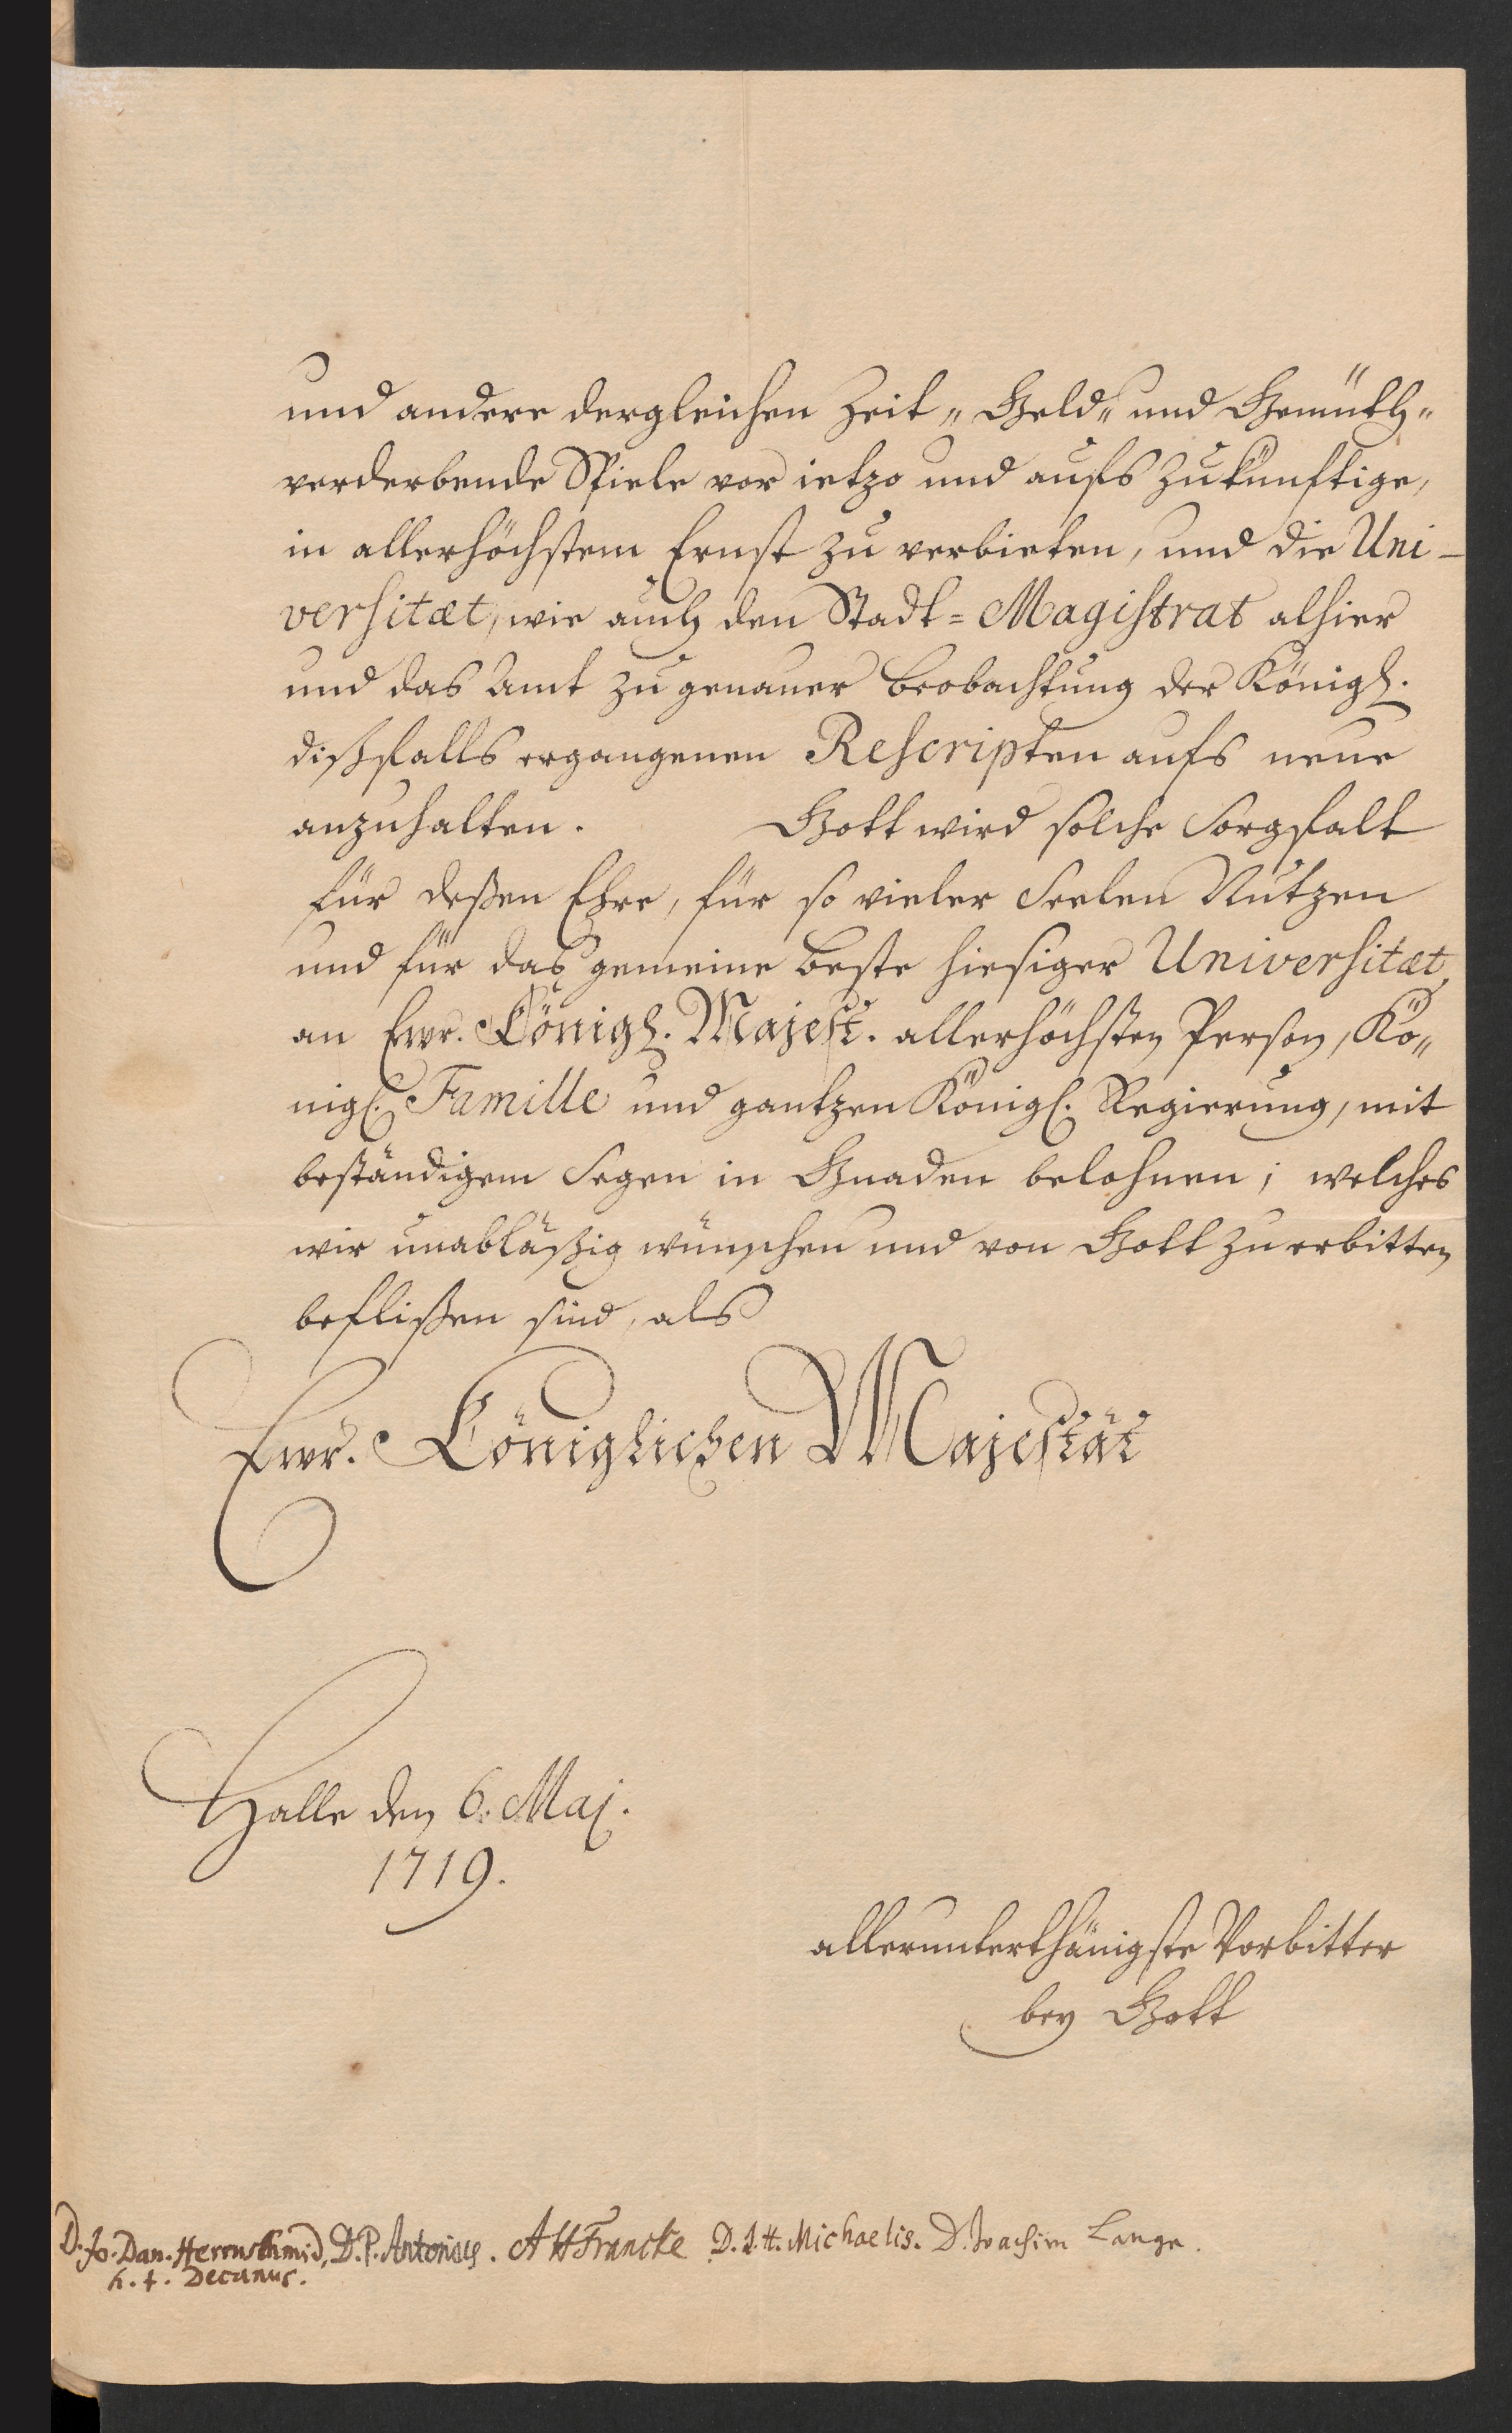 und andere dergleichen Zeit„ Geld„ und Gemüth„
verderbende Spiele vor ietzo und aufs zukünftige,
in allerhöchstem Ernst zu verbieten, und die Uni-
versitæt, wie auch den Stadt=Magistrat alhier
und das Amt zu genauer Beobachtung der Königl.
dißfalls ergangenen Rescripten aufs neue
anzuhalten. Gott wird solche Sorgfalt
für deßen Ehre, für so vieler Seelen Nutzen
und für das gemeine Beste hiesiger Universitæt,
an Ewr. Königl. Majest. allerhöchsten Person, Kö„
nigl. Famille und gantzen Königl. Regierung, mit
beständigem Segen in Gnaden belohnen; welches
wir unabläßig wünschen und von Gott zu erbitten
beflißen sind, als
Ewr. Königlichen Majestät
Halle den 6. Maj.
1719.
allerunterthänigste Vorbitter
bey Gott
D. Jo. Dan. Herrnschmid, D. P. Antonius. AHFrancke D. J. H. Michaelis. D. Joachim Lange.
h. t. Decanus.